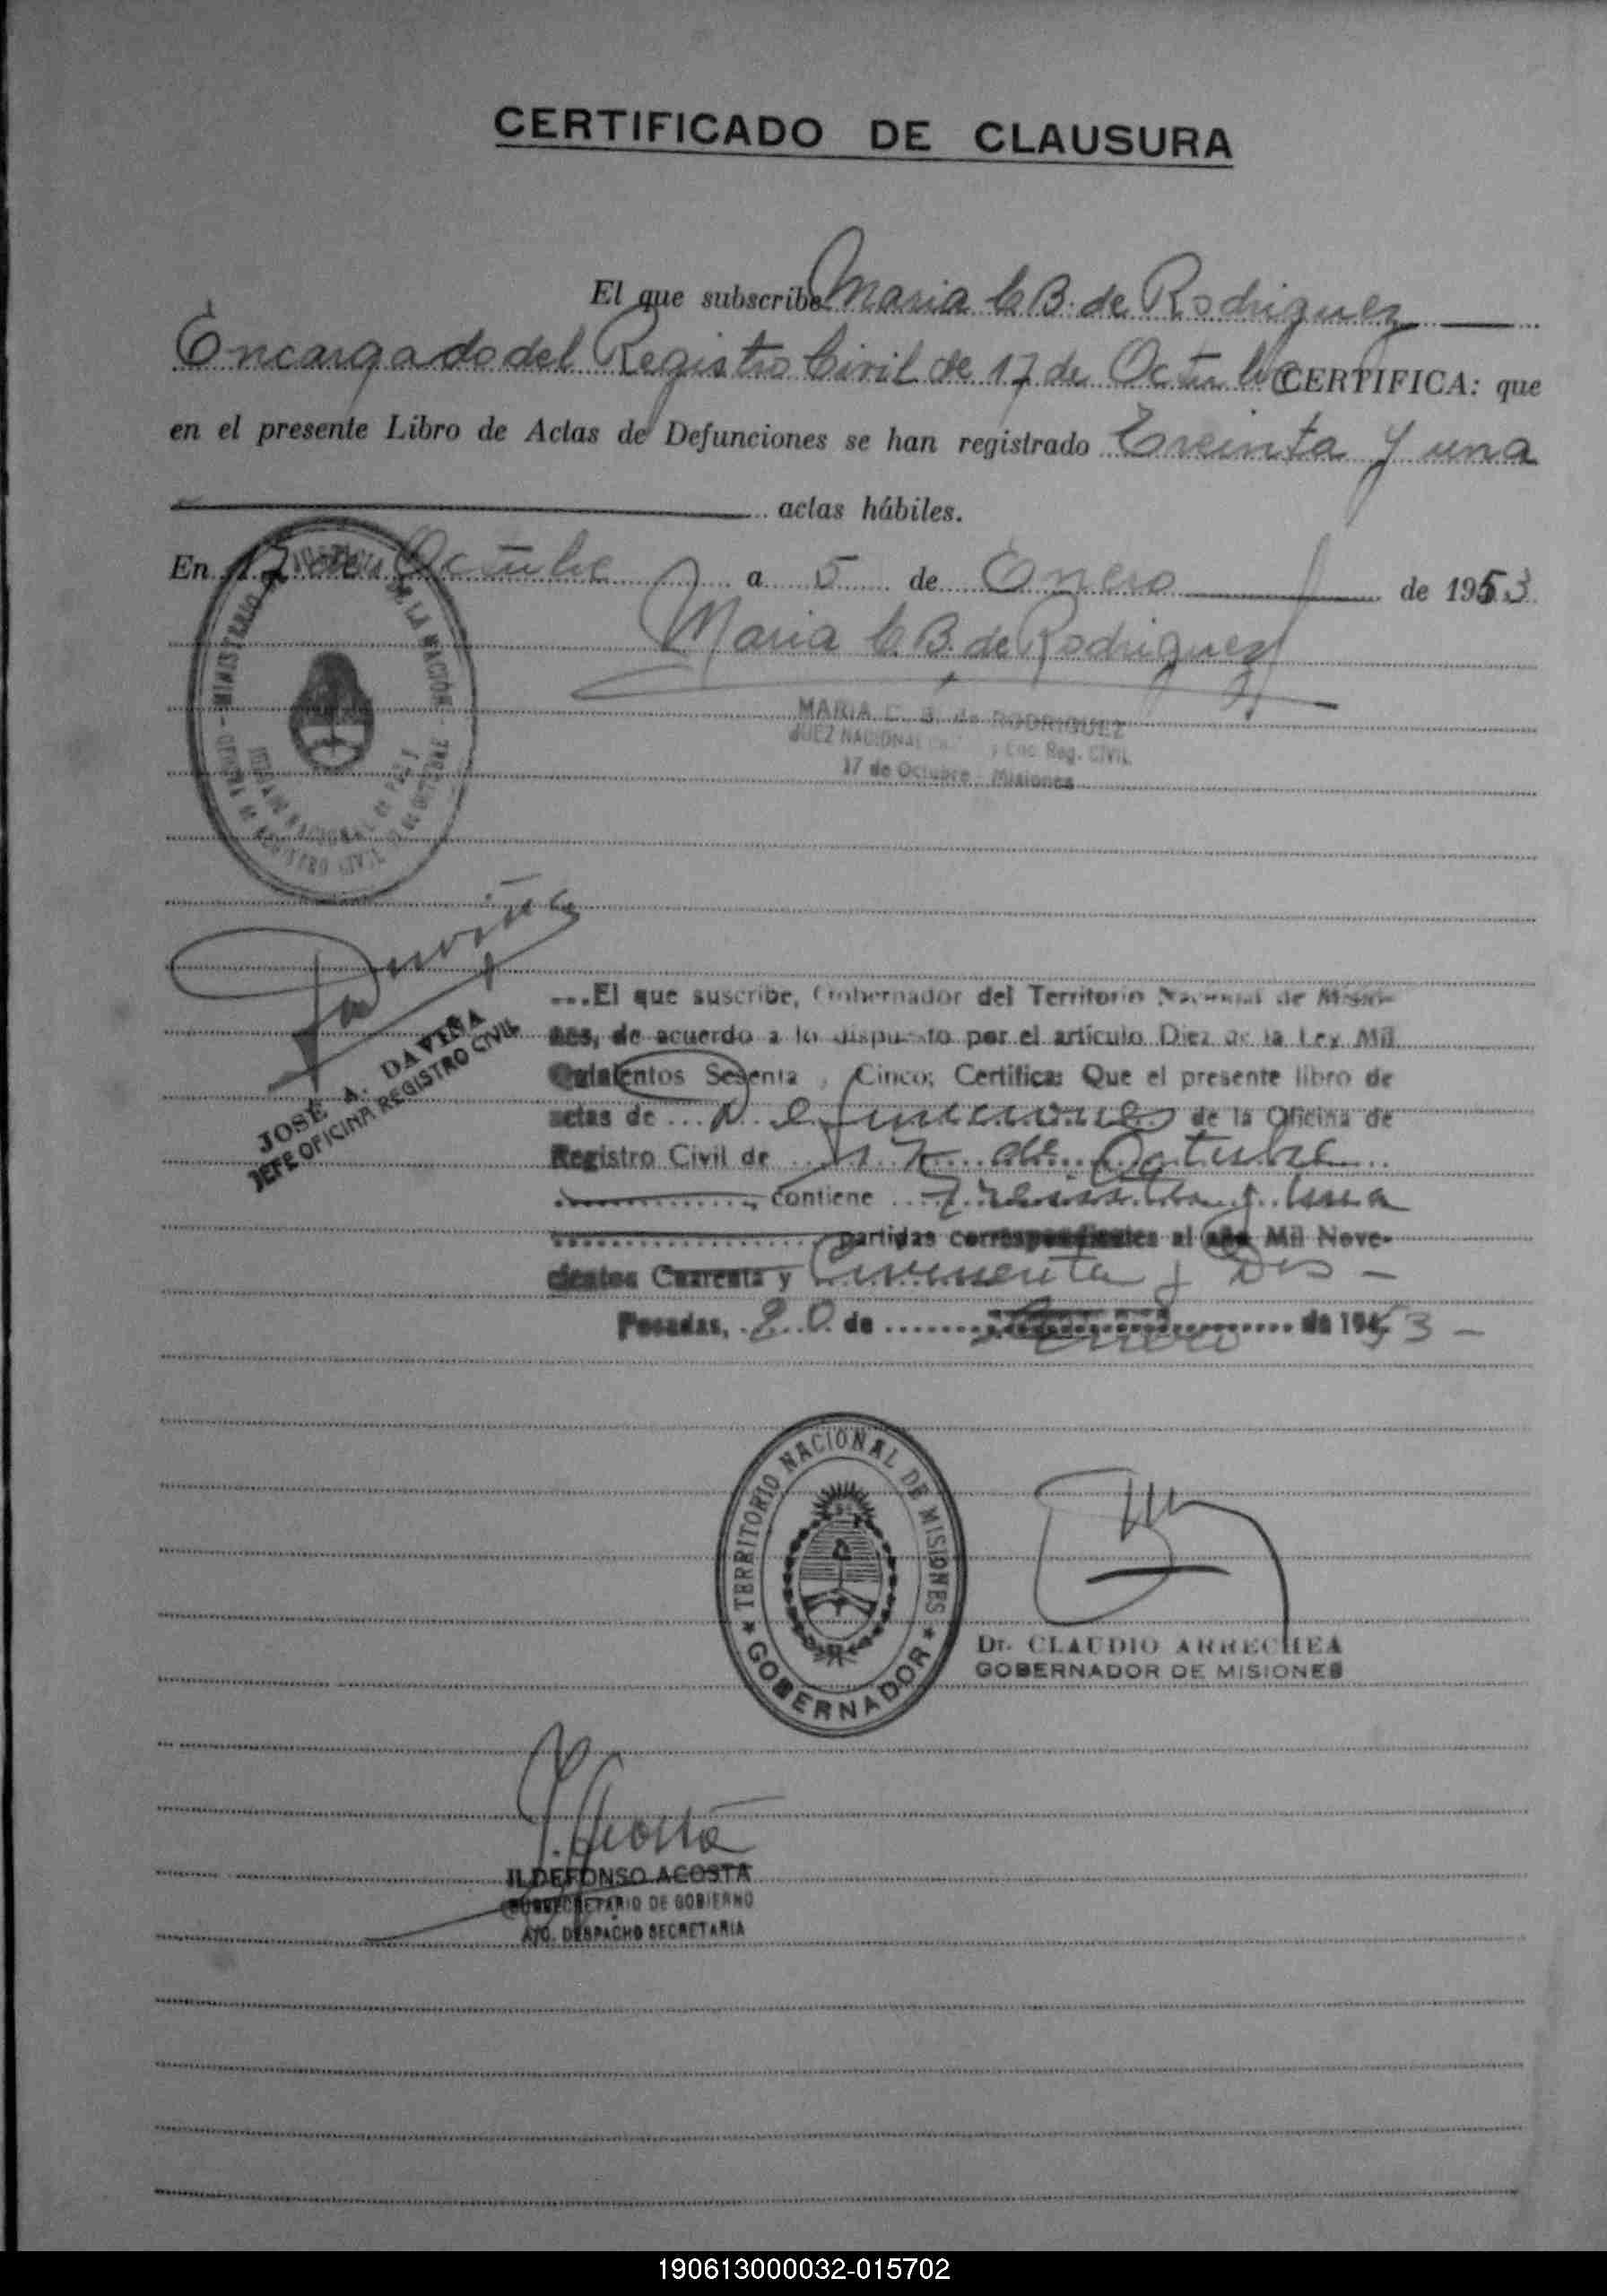 CERTIFICADO DE CLAUSURA
El que subscribe Maria C. B. de Rodriguez
Encargado del Registro Civil de 17 de Octubre CERTIFICA: que
en el presente Libro de Actas de Defunciones se han registrado Treinta y una
actas hábiles.
En 17 de Octubre a 5 de Enero de 1953
Maria C. B. de Rodriguez
MARIA C. B. de RODRIGUEZ
JUEZ NACIONAL y Enc. Reg. CIVIL
17 de Octubre - Misiones
MINISTERIO DE JUSTICIA DE LA NACIÓN
JUZGADO NACIONAL DE PAZ
OFICINA DE REGISTRO CIVIL 17 DE OCTUBRE
Daviña
JOSÉ A. DAVIÑA
JEFE OFICINA REGISTRO CIVIL
...El que suscribe, Gobernador del Territorio Nacional de Misio-
nes, de acuerdo a lo dispuesto por el artículo Diez de la Ley Mil
Quinientos Sesenta y Cinco; Certifica: Que el presente libro de
actas de ... Defunciones de la Oficina de
Registro Civil de ... 17 de Octubre
contiene ... Treinta y una
partidas correspondientes al año Mil Nove-
cientos Cuarenta y Cincuenta y Dos -
Posadas, 20 de Enero de 1953 -
TERRITORIO NACIONAL DE MISIONES
★ GOBERNADOR ★
Dr. CLAUDIO ARRECHEA
GOBERNADOR DE MISIONES
I. Acosta
ILDEFONSO ACOSTA
SUBSECRETARIO DE GOBIERNO
A/C. DESPACHO SECRETARIA
190613000032-015702